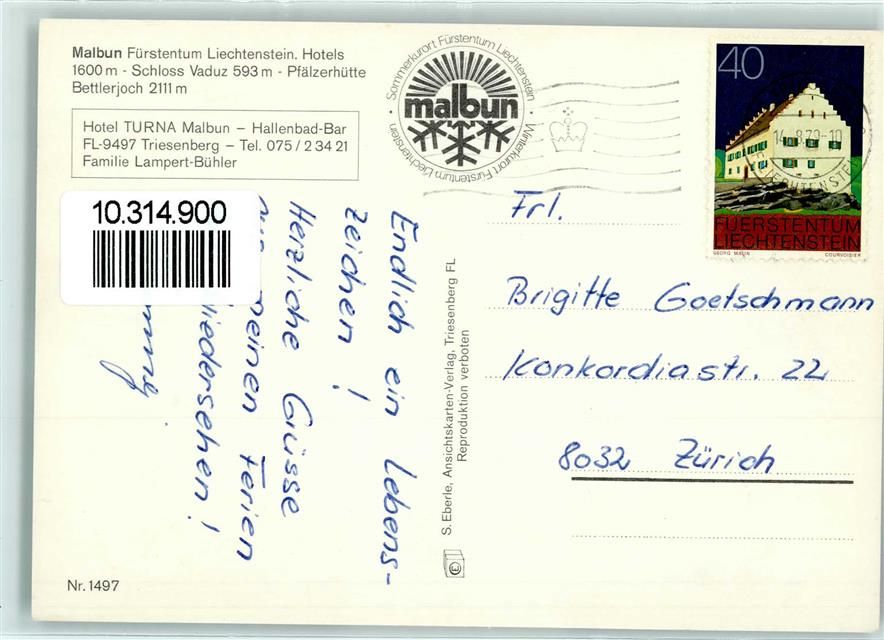 Malbun Fürstentum Liechtenstein. Hotels
1600 m - Schloss Vaduz 593 m - Pfälzerhütte
Bettlerjoch 2111 m
Hotel TURNA Malbun – Hallenbad-Bar
FL-9497 Triesenberg – Tel. 075 / 2 34 21
Familie Lampert-Bühler
10.314.900
Sommerkurort Fürstentum Liechtenstein
malbun
Winterkurort Fürstentum Liechtenstein
40
14.8.79-10
FUERSTENTUM
LIECHTENSTEIN
GEORG MALIN COURVOISIER
Endlich ein Lebens-
zeichen !
Herzliche Grüsse
meinen Ferien
S. Eberle, Ansichtskarten-Verlag, Triesenberg FL
Reproduktion verboten
Frl.
Brigitte Goetschmann
Konkordiastr. 22
8032 Zürich
Nr. 1497